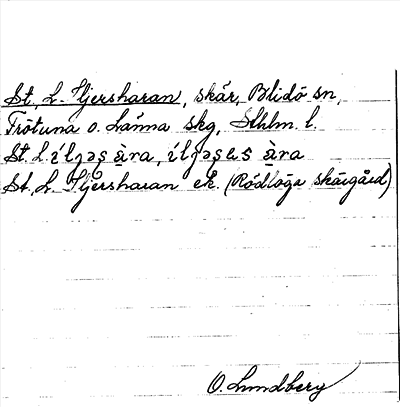 St., L. Iljersharan, skär, Blidö sn,
Frötuna o. Länna skg, Sthlm. l.
St. L. íljəs àra, íljəsas àra
St., L. Iljersharan ek. (Rödlöga skärgård)
O. Lundberg